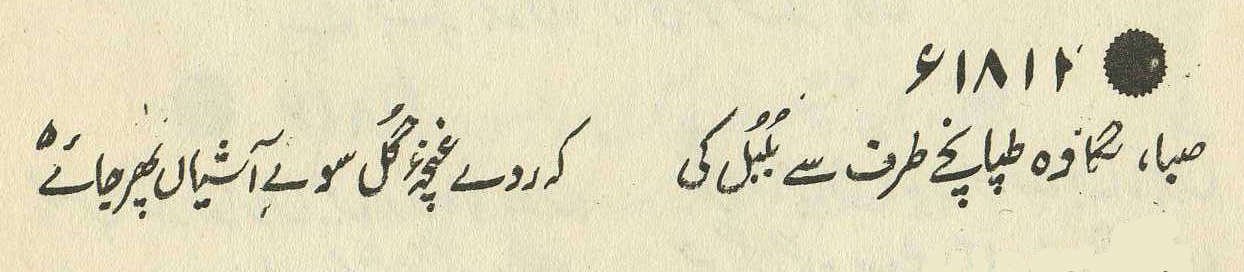 ۱۸۱۲ء
صبا، لگا وہ طپانچے طرف سے بُلبُل کی کہ روے غنچۂ گُل سوے آشیاں پھر جائے